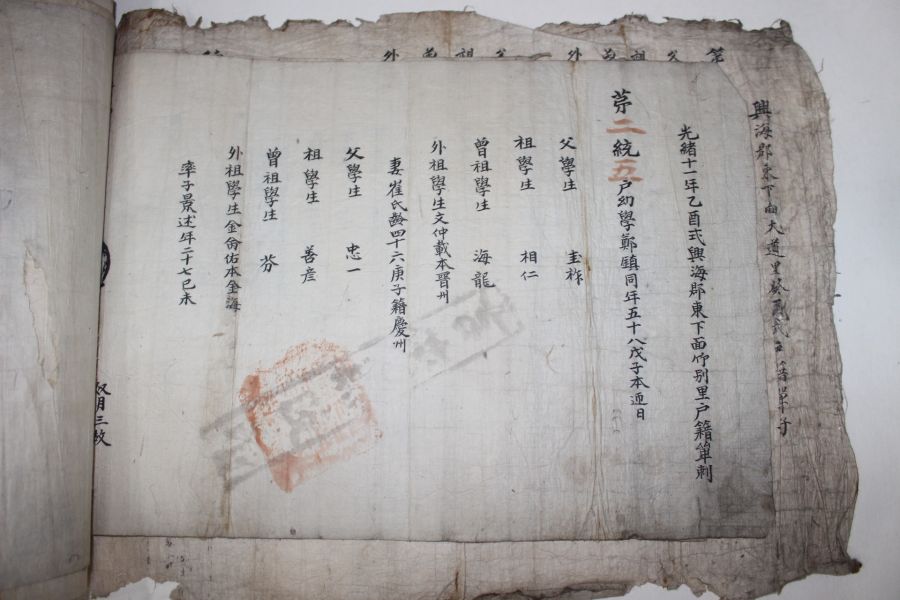 興海郡東下面大道里癸酉式
光緖十一年乙酉式興海郡東下面竹別里戶籍單刺
苐二統五戶幼學鄭鎭同年五十八戊子本迎日
父學生 圭祚
祖學生 相仁
曾祖學生 海龍
外祖學生文仲載本晋州
妻崔氏齡四十六庚子籍慶州
父學生 忠一
祖學生 善彦
曾祖學生 芬
外祖學生金佑本金海
率子景述年二十七己未